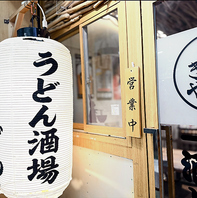 うどん酒場
営業中
きや